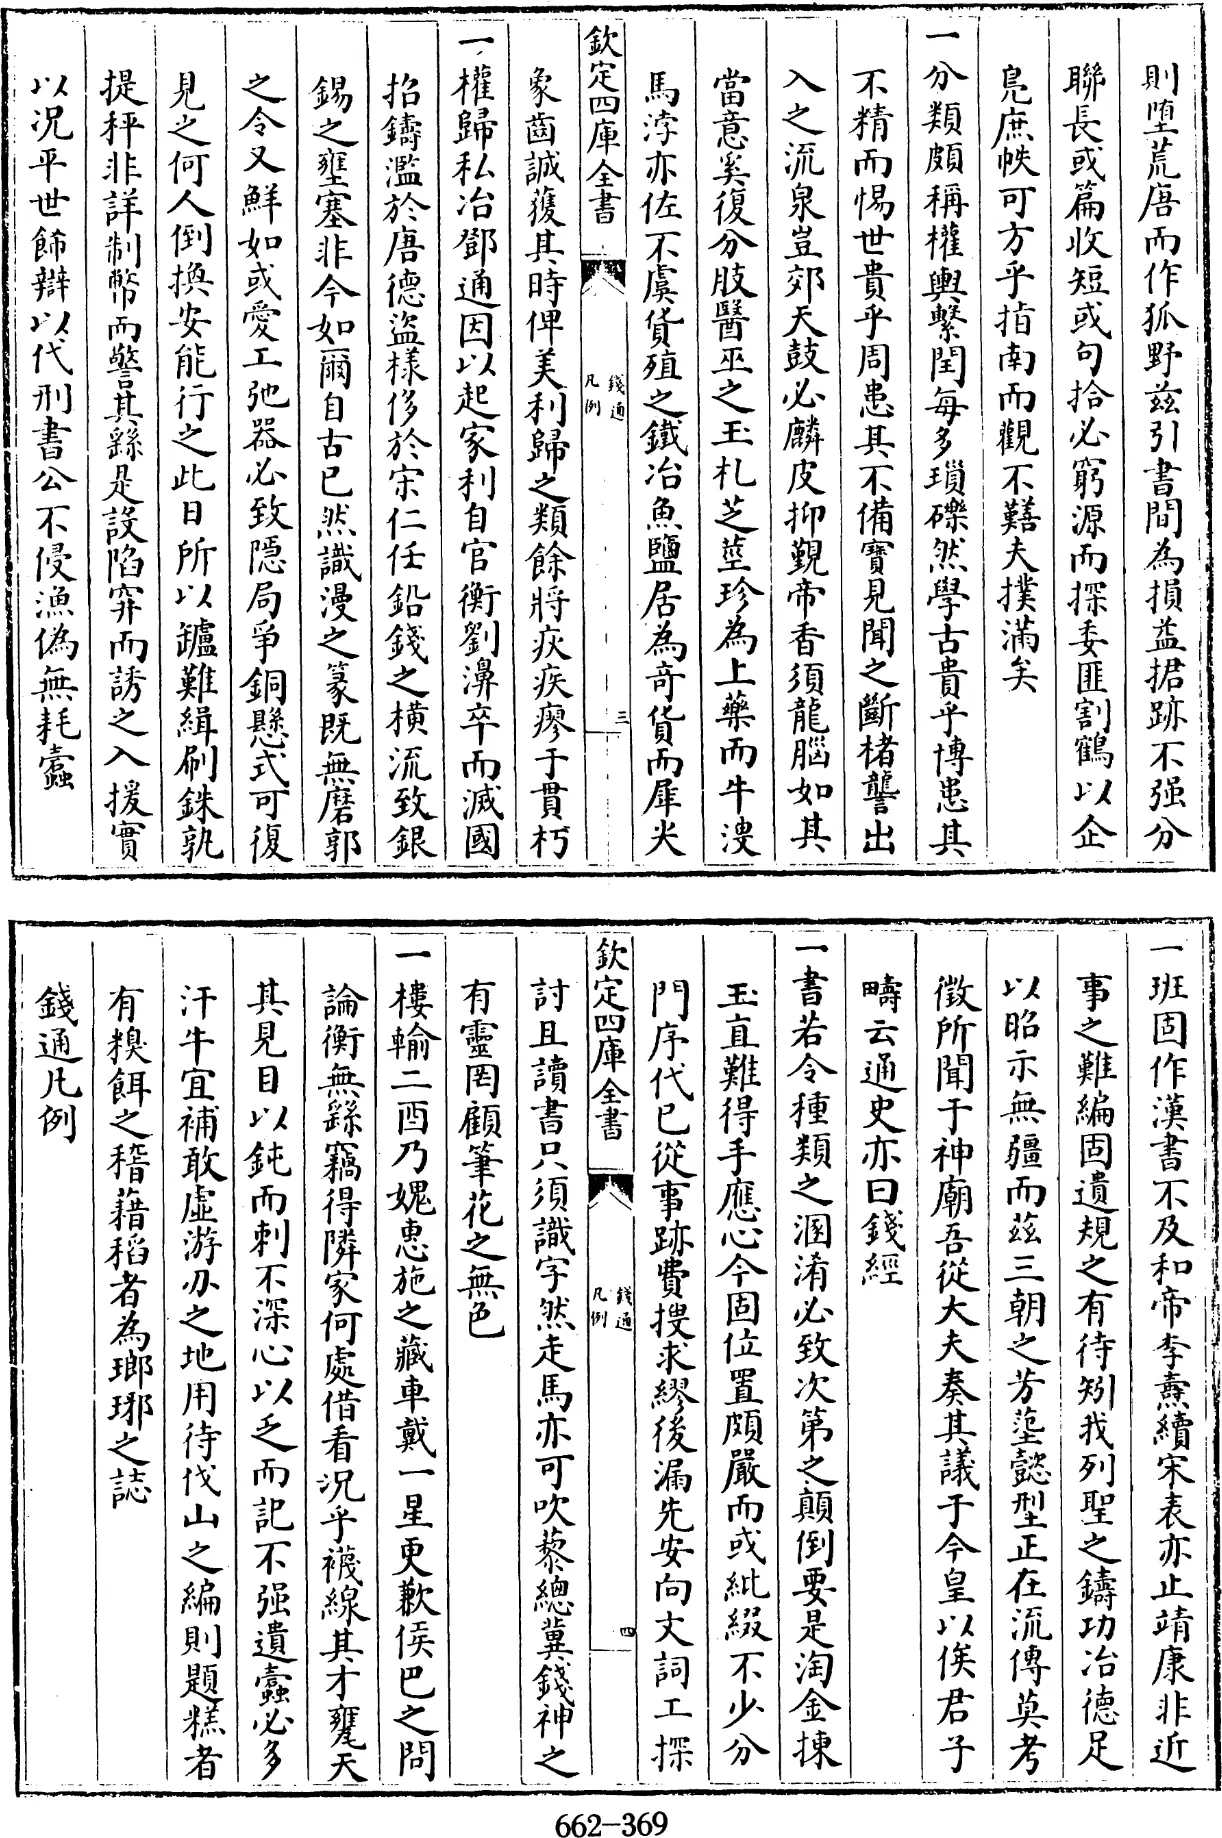 則堕荒唐而作狐野兹引書間為損益据跡不强分
聯長或篇收短或句拾必窮源而探委匪割鶴以企
鳬庶帙可方乎指南而觀不囏夫撲滿矣
一分類頗稱權輿繫閏每多瑣礫然學古貴乎博患其
不精而惕世貴乎周患其不備寳見聞之斷楮讋出
入之流泉豈郊天鼓必麟皮抑覲帝香須龍腦如其
當意奚復分肢醫巫之玉札芝莖珍為上藥而牛溲
馬浡亦佐不虞貨殖之鐵冶魚鹽居為竒貨而犀火
欽定四庫全書
錢通
凡例
三
象齒誠獲其時俾美利歸之類餘將疢疾瘳于貫朽
一權歸私冶鄧通因以起家利自官衡劉濞卒而滅國
招鑄濫於唐德盜樣侈於宋仁任鉛錢之横流致銀
錫之壅塞非今如爾自古已然識漫之篆既無磨郭
之令又鮮如或愛工弛器必致隱局爭銅懸式可復
見之何人倒換安能行之此日所以鑪難緝刷銖孰
提秤非詳制幣而警其繇是設陷穽而誘之入援實
以况平世飾辯以代刑書公不侵漁偽無耗蠧
一班固作漢書不及和帝李燾續宋表亦止靖康非近
事之難編固遺規之有待矧我列聖之鑄功冶德足
以昭示無疆而茲三朝之芳蹤懿型正在流傳莫考
徴所聞于神廟吾從大夫奏其議于今皇以俟君子
疇云通史亦曰錢經
一書若令種類之溷淆必致次第之顛倒要是淘金揀
玉直難得手應心今固位置頗嚴而或紕綴不少分
門序代已從事跡費搜求繆後漏先安向文詞工探
欽定四庫全書
錢通
凡例
四
討且讀書只須識字然走馬亦可吹藜總冀錢神之
有靈罔顧筆花之無色
一樓輸二酉乃媿惠施之藏車戴一星更歉侯巴之問
論衡無繇竊得隣家何處借看况乎襪線其才甕天
其見目以鈍而刺不深心以乏而記不强遺蠧必多
汗牛宜補敢虛游刃之地用待伐山之編則題糕者
有糗餌之稽藉稻者為瑯琊之誌
錢通凡例
662-369